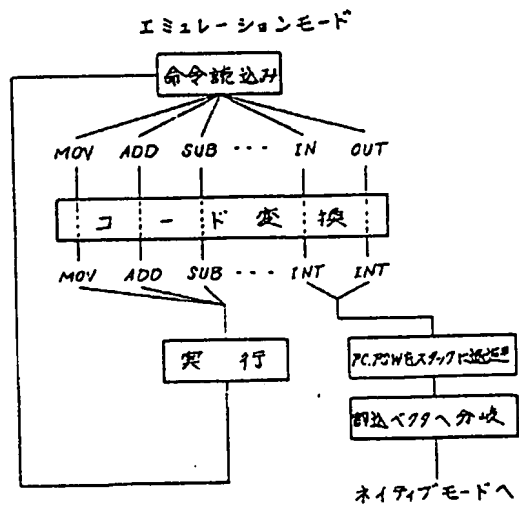 エミュレーションモード
命令読込み
MOV ADD SUB --- IN OUT
コード変換
MOV ADD SUB --- INT INT
実行
PC.PSWをスタックに退避
割込ベクタへ分岐
ネイティブモードへ